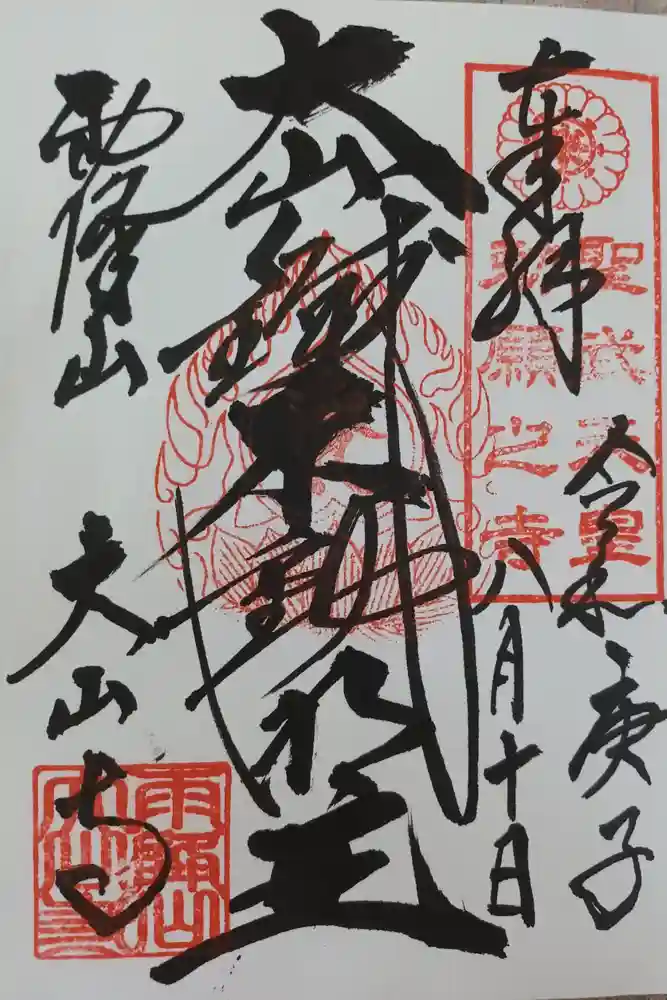 奉拝
令和庚子
八月十日
聖武天皇
勅願之寺
大山鐵不動明王
雨降山
大山寺
雨降山
大山寺